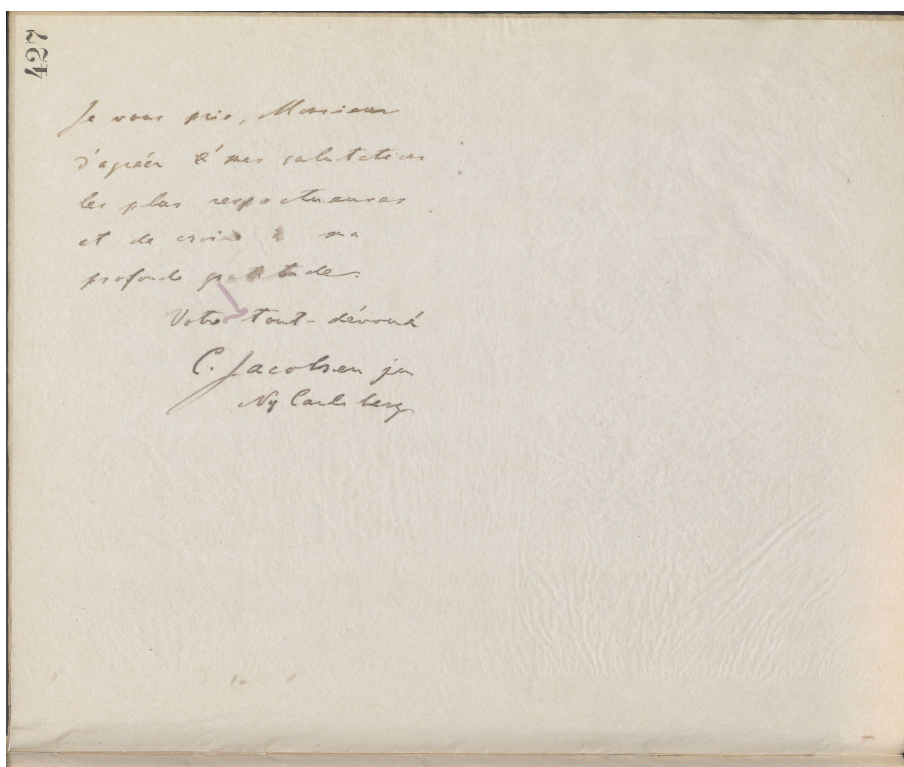 427
Je vous prie, Monsieur
d'agréer & mes salutations
les plus respectueuses
et de croire à ma
profonde gratitude.
Votre tout-dévoué
C. Jacobsen jun
Ny Carlsberg